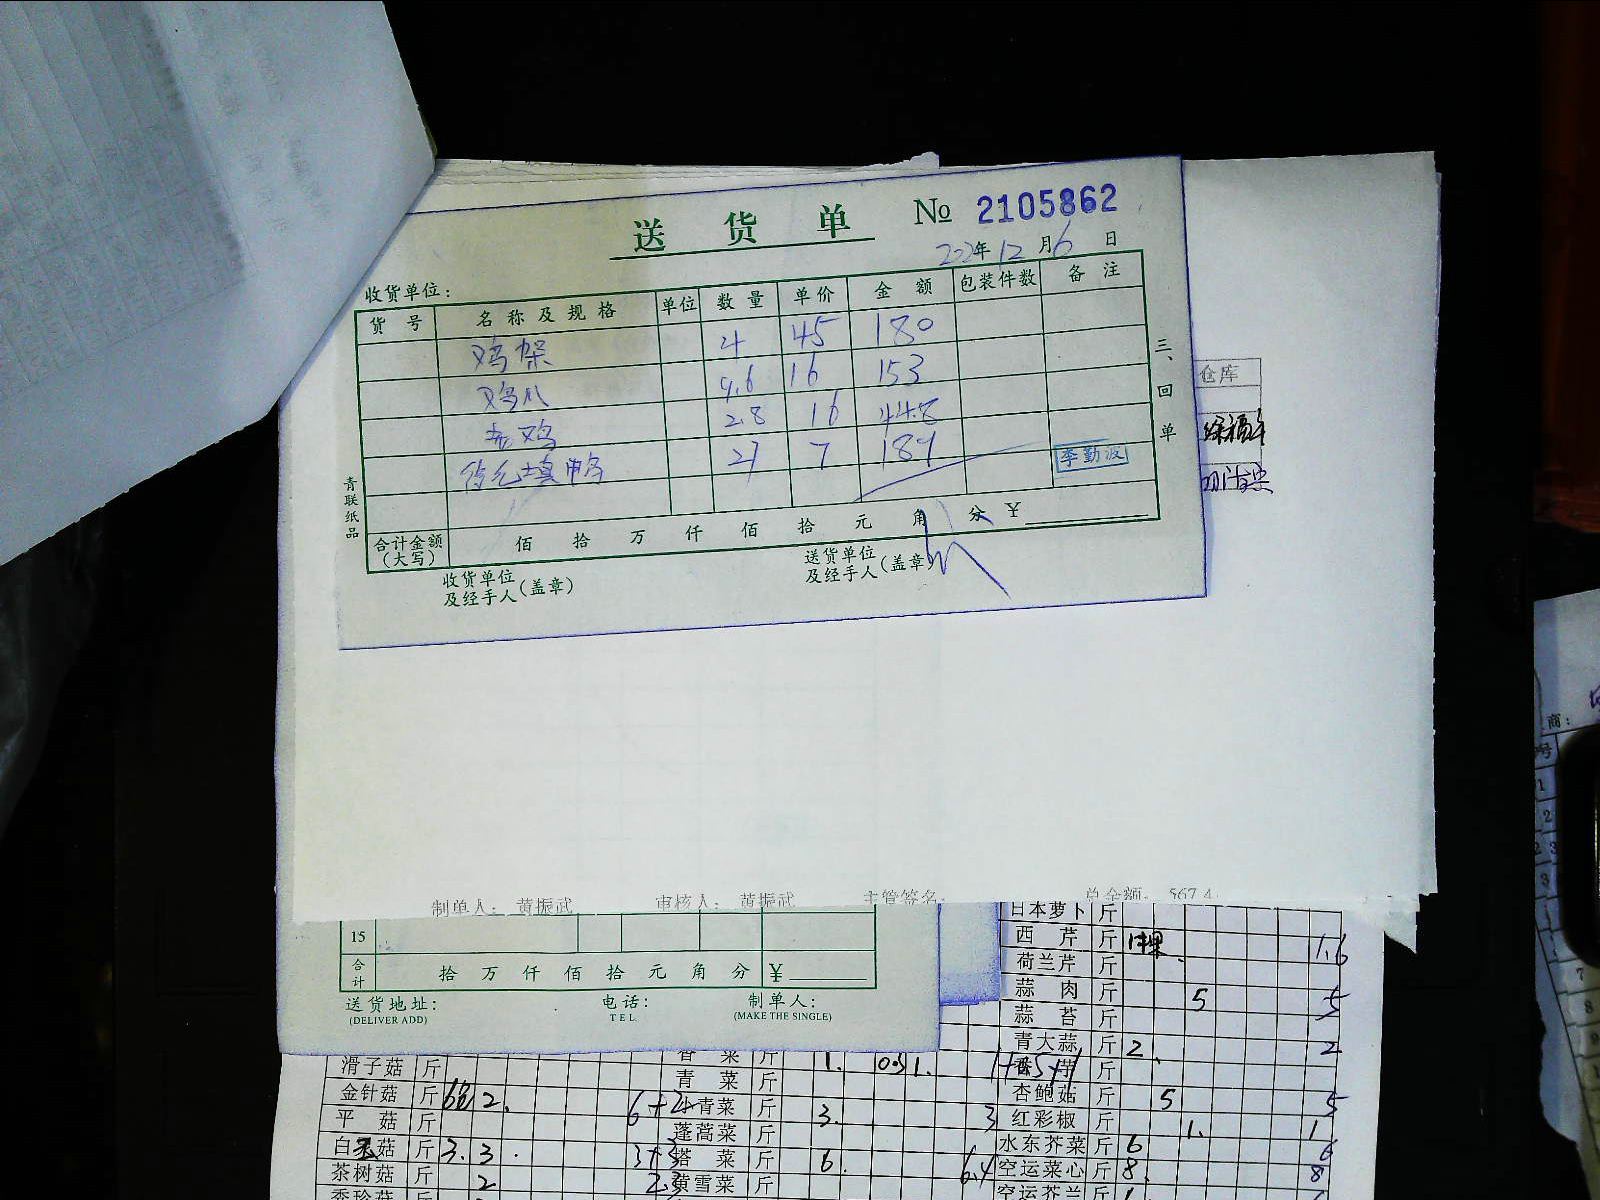 送 货 单 № 2105862
2022年 12 月 6 日
收货单位：
货 号 名 称 及 规 格 单位 数 量 单 价 金 额 包装件数 备 注
鸡架 4 45 180
鸡爪 9.6 16 153
老鸡 2.8 16 44.8
填鸭 27 7 189
李勤波
合计金额 佰 拾 万 仟 佰 拾 元 角 分 ￥
（大写）
收货单位
及经手人（盖章）
送货单位
及经手人（盖章）
三、回单
青联纸品
仓库
制单人： 黄振武 审核人： 黄振武 主管签名： 总金额： 567.4
15
合计 拾 万 仟 佰 拾 元 角 分 ￥
送货地址： 电话： 制单人：
(DELIVER ADD) TEL (MAKE THE SINGLE)
日本萝卜 斤
西 芹 斤 1.6
荷兰芹 斤
蒜 肉 斤 5 5
蒜 苔 斤
青大蒜 斤 2 2
杏鲍菇 斤 5 5
红彩椒 斤 1. 1
水东芥菜 斤 6 6
空运菜心 斤 8 8
空运芥兰 斤
滑子菇 斤
金针菇 斤 2.
平 菇 斤
白玉菇 斤 3. 3.
茶树菇 斤 2
香 菜 斤 1.
青 菜 斤
小青菜 斤 3. 3
蓬蒿菜 斤
塔 菜 斤 6. 6.4
黄雪菜 斤